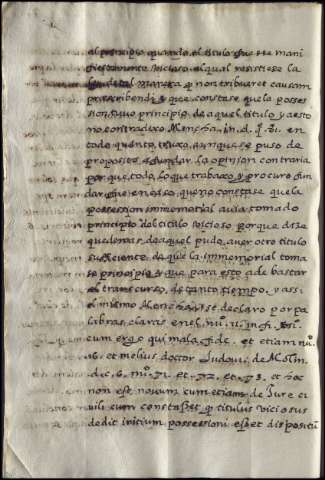 al principio quando el titulo fuesse mani
fiestamente vicioso el qual resistiese la
ley de tal manera q non tribueret causam
prescribendi y que constase que la posses
sion tuuo principio de aquel titulo y a esto
no contradixo Menchaca in. d. q. en
todo quanto truxo, aunque se puso de
proposito a fundar la opinion contraria
por que todo lo que trabaxo y procuro fun
dar fue en caso que no constase que la
possession immemorial auia tomado
principio del titulo vicioso porque dize
que demas de aquel pudo auer otro titulo
sufficiente de que la immemorial toma
se principio y que para esto a de bastar
el transcurso de tanto tiempo. y assi
el mismo Menchaca se declaro por pa
labras claras en el. nu. 11. in fi.
cum ergo qui mala fide. et etiam nu.
16. et melius doctor Ludoui. de Molin.
d. c. 6. nu. 71. et. 72. et. 73. et hoc
non est nouum cum etiam de Jure ci
uili cum constasset q titulus viciosus
dedit initium possessioni esset dispositũ